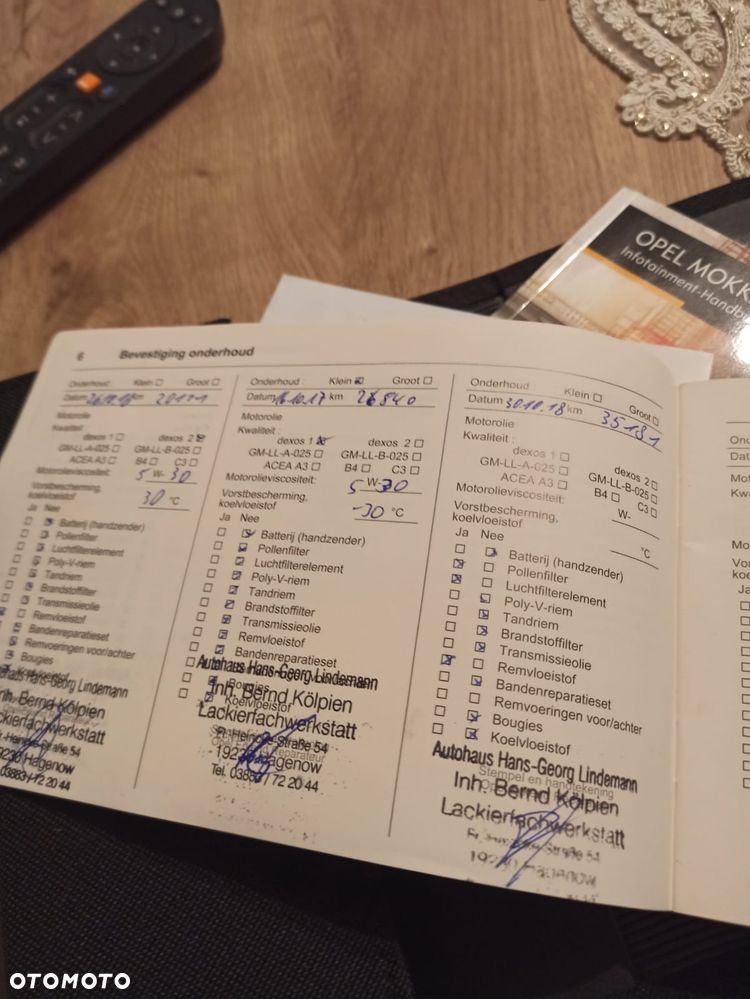 OPEL MOKK
Infotainment-Handb
6 Bevestiging onderhoud
Onderhoud: Klein Groot
Datum km
Motorolie
Kwaliteit :
dexos 1 dexos 2
GM-LL-A-025 GM-LL-B-025
ACEA A3 B4 C3
Motorolieviscositeit: 5 W-30
Vorstbescherming,
koelvloeistof 30 °C
Ja Nee
Batterij (handzender)
Pollenfilter
Luchtfilterelement
Poly-V-riem
Tandriem
Brandstoffilter
Transmissieolie
Remvloeistof
Bandenreparatieset
Remvoeringen voor/achter
Bougies
haus Hans-Georg Lindemann
Inh. Bernd Kölpien
ckierfachwerkstatt
9230 Hagenow
03883 / 72 20 44
Onderhoud : Klein Groot
Datum 16.10.17 km 26840
Motorolie
Kwaliteit :
dexos 1 dexos 2
GM-LL-A-025 GM-LL-B-025
ACEA A3 B4 C3
Motorolieviscositeit: 5 W-30
Vorstbescherming,
koelvloeistof -30 °C
Ja Nee
Batterij (handzender)
Pollenfilter
Luchtfilterelement
Poly-V-riem
Tandriem
Brandstoffilter
Transmissieolie
Remvloeistof
Bandenreparatieset
Bougies
Koelvloeistof
Autohaus Hans-Georg Lindemann
Inh. Bernd Kölpien
Lackierfachwerkstatt
Straße 54
Hagenow
Tel. 03883 / 72 20 44
Onderhoud Klein Groot
Datum 30.10.18 km 35181
Motorolie
Kwaliteit :
dexos 1 dexos 2
GM-LL-A-025 GM-LL-B-025
ACEA A3 B4 C3
Motorolieviscositeit: W-
Vorstbescherming,
koelvloeistof °C
Ja Nee
Batterij (handzender)
Pollenfilter
Luchtfilterelement
Poly-V-riem
Tandriem
Brandstoffilter
Transmissieolie
Remvloeistof
Bandenreparatieset
Remvoeringen voor/achter
Bougies
Koelvloeistof
Autohaus Hans-Georg Lindemann
Stempel en handtekening
Inh. Bernd Kölpien
Lackierfachwerkstatt
Straße 54
OTOMOTO